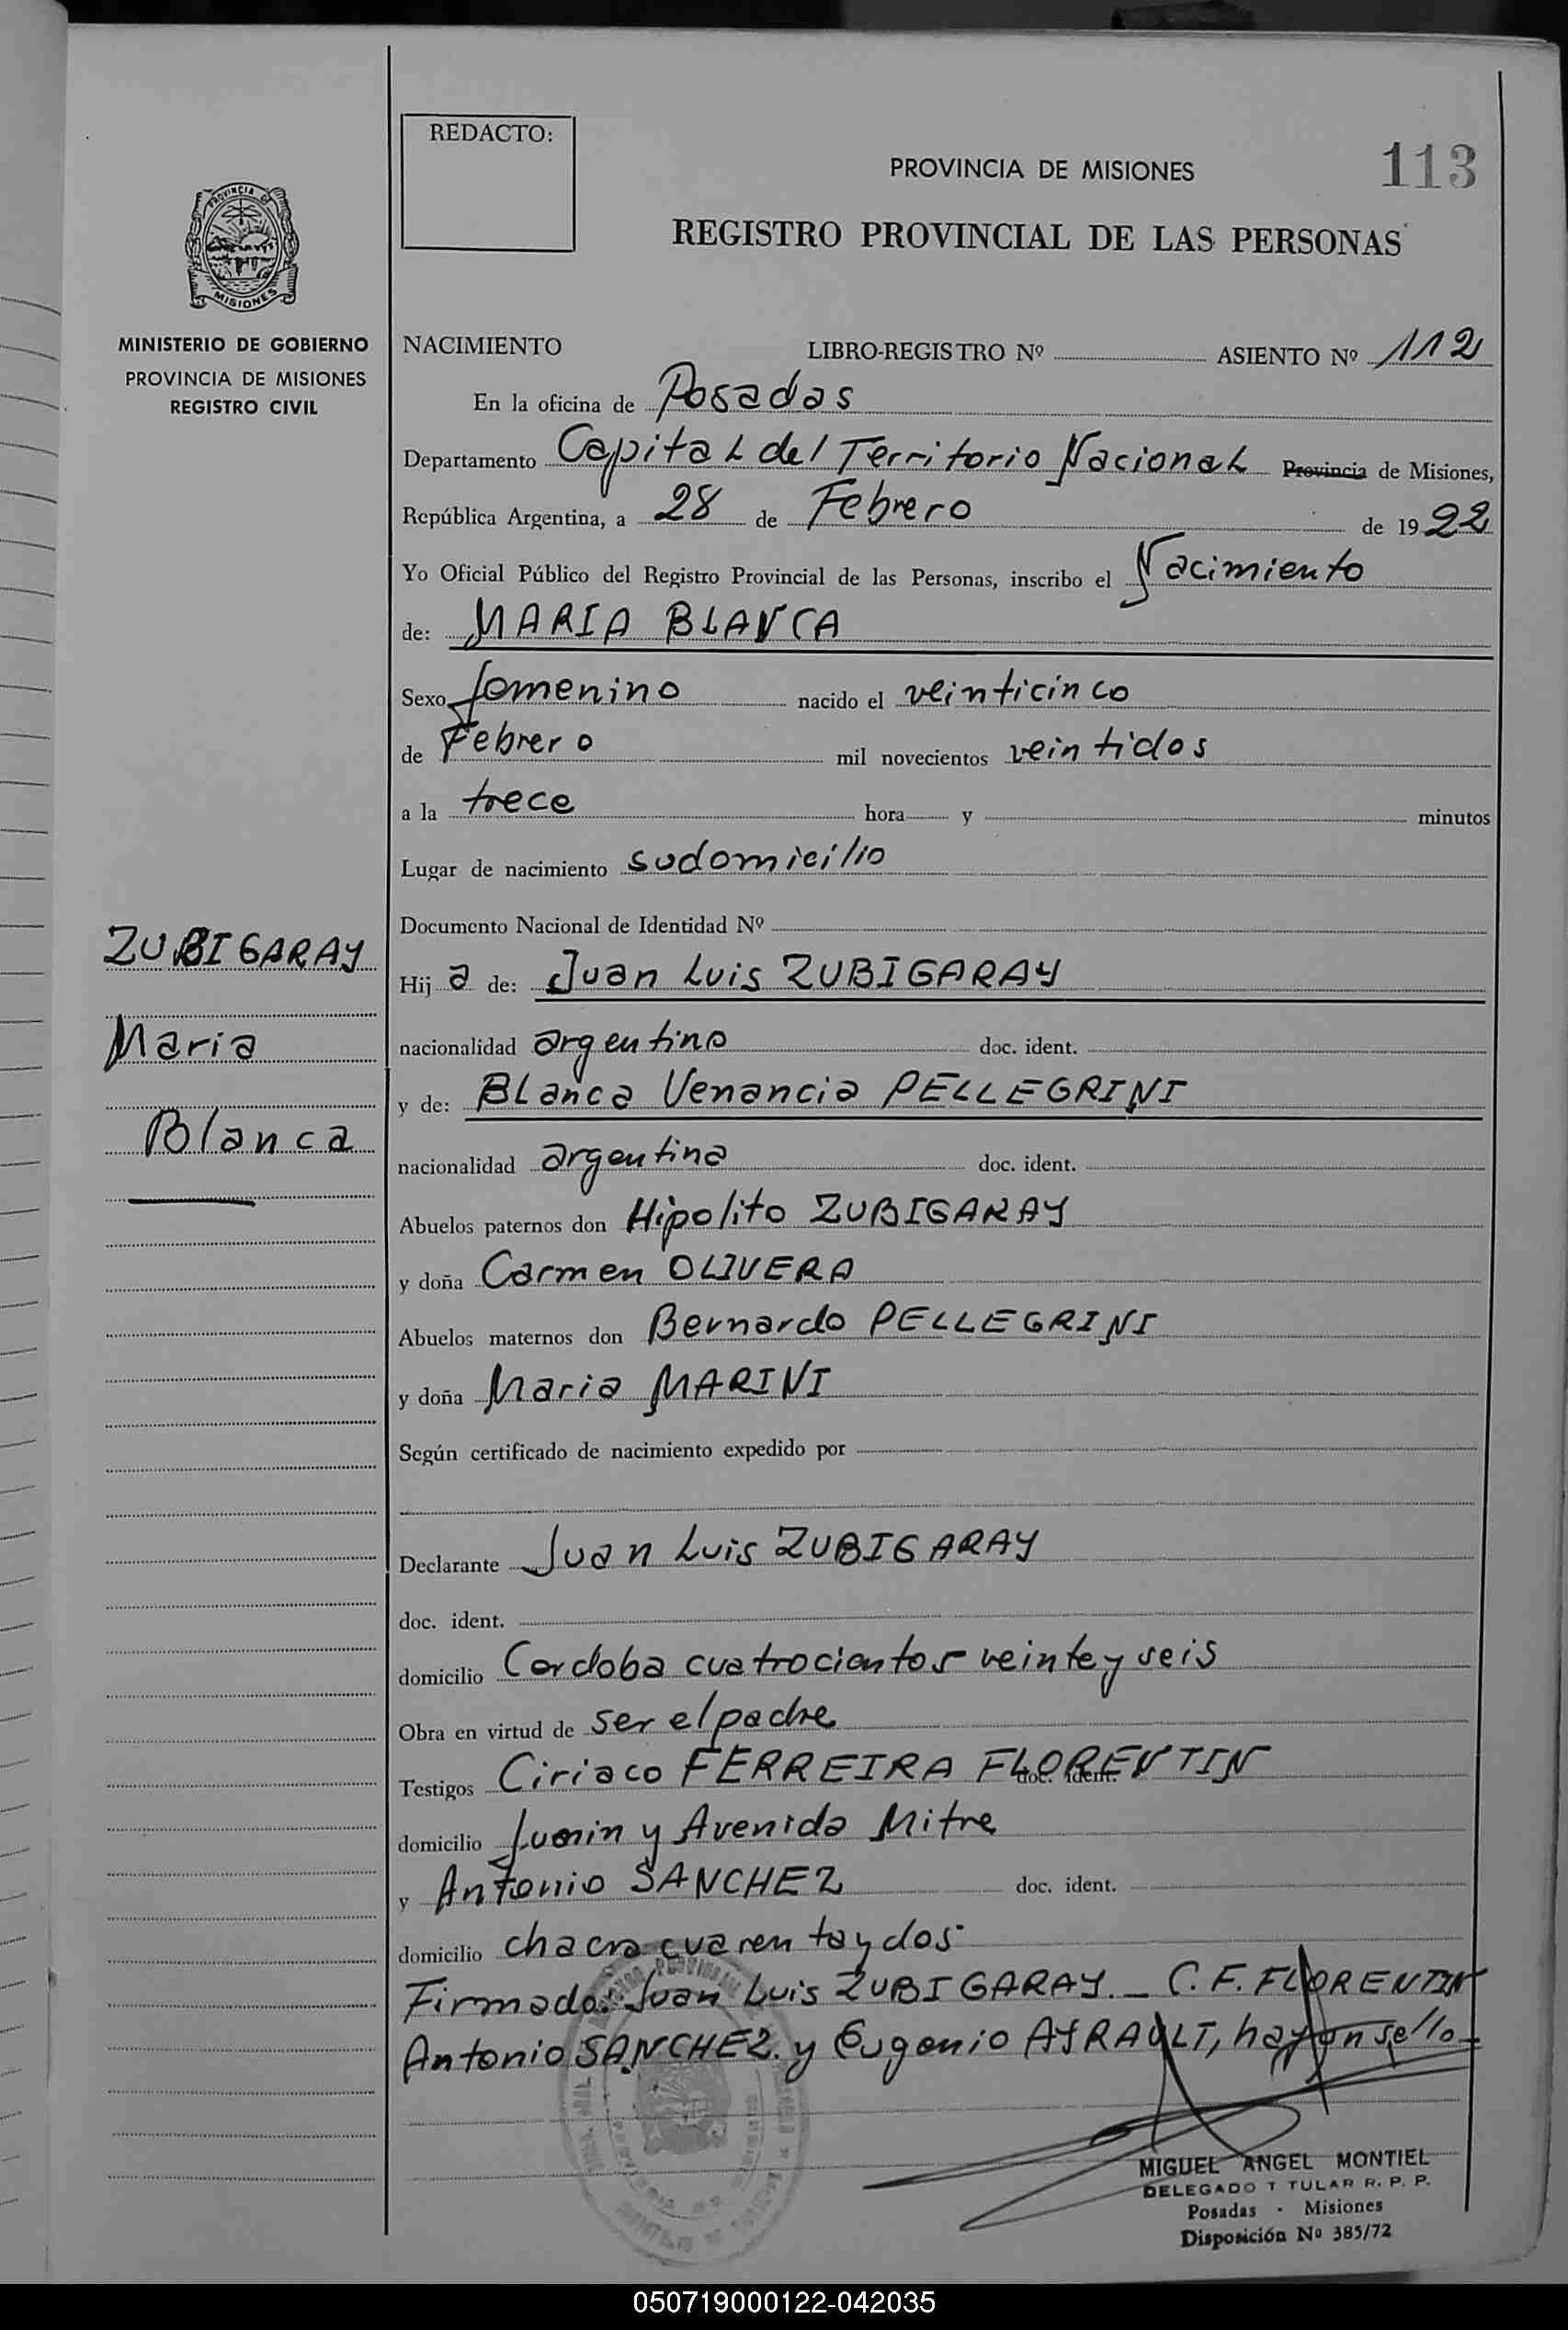 REDACTO:
PROVINCIA DE MISIONES
113
REGISTRO PROVINCIAL DE LAS PERSONAS
PROVINCIA DE
MISIONES
MINISTERIO DE GOBIERNO
PROVINCIA DE MISIONES
REGISTRO CIVIL
NACIMIENTO LIBRO-REGISTRO Nº ASIENTO Nº 112
En la oficina de Posadas
Departamento Capital del Territorio Nacional Provincia de Misiones,
República Argentina, a 28 de Febrero de 1922
Yo Oficial Público del Registro Provincial de las Personas, inscribo el Nacimiento
de: MARIA BLANCA
Sexo femenino nacido el veinticinco
de Febrero mil novecientos veintidos
a la trece hora y minutos
Lugar de nacimiento sudomicilio
Documento Nacional de Identidad Nº
ZUBIGARAY
Maria
Blanca
Hij a de: Juan Luis ZUBIGARAY
nacionalidad argentino doc. ident.
y de: Blanca Venancia PELLEGRINI
nacionalidad argentina doc. ident.
Abuelos paternos don Hipolito ZUBIGARAY
y doña Carmen OLIVERA
Abuelos maternos don Bernardo PELLEGRINI
y doña Maria MARINI
Según certificado de nacimiento expedido por
Declarante Juan Luis ZUBIGARAY
doc. ident.
domicilio Cordoba cuatrocientos veinte y seis
Obra en virtud de ser el padre
Testigos Ciriaco FERREIRA FLORENTIN doc. ident.
domicilio Junin y Avenida Mitre
y Antonio SANCHEZ doc. ident.
domicilio chacra cuarenta y dos
Firmado: Juan Luis ZUBIGARAY._ C.F. FLORENTIN
Antonio SANCHEZ. y Eugenio AYRAULT, hay un sello
MIGUEL ANGEL MONTIEL
DELEGADO T TULAR R. P. P.
Posadas - Misiones
Disposición Nº 385/72
050719000122-042035